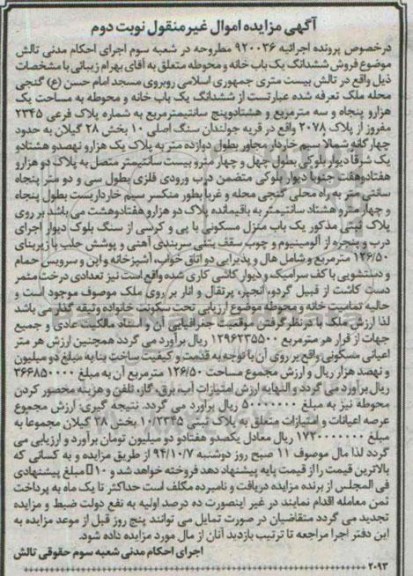 آگهی مزایده اموال غیر منقول نوبت دوم
درخصوص پرونده اجرائیه ۹۲۰۰۳۶ مطروحه در شعبه سوم اجرای احکام مدنی تالش
موضوع فروش ششدانگ یک باب خانه و محوطه متعلق به آقای بهرام زیبائی با مشخصات
ذیل واقع در تالش بیست متری جمهوری اسلامی روبروی مسجد امام حسن (ع) گنجی
محله ملک تعرفه شده عبارتست از ششدانگ یک باب خانه و محوطه به مساحت یک
هزارو پنجاه و سه مترمربع و هشتادوپنج سانتیمترمربع به شماره پلاک فرعی ۲۳۴۵
مفروز از پلاک ۲۰۷۸ واقع در قریه جولندان سنگ اصلی ۱۰ بخش ۲۸ گیلان به حدود
چهارگانه شمالا سیم خاردار مجاور بطول دوازده متر به پلاک یک هزارو نهصدو هشتادو
یک شرقا دیوار بلوکی بطول چهل و چهار مترو بیست سانتیمتر متصل به پلاک دو هزارو
هفتادوهفت جنوبا دیوار بلوکی متضمن درب ورودی فلزی بطول سی و دو متر پنجاه
سانتی متر به راه محلی گنجی محله و غربا بطور منکسر سیم خارداریست بطول پنجاه
و چهار مترو هشتاد سانتیمتر به باقیمانده پلاک دو هزارو هفتادوهشت می باشد بر روی
پلاک ثبتی مذکور یک باب منزل مسکونی با پی و کرسی از سنگ بلوک دیوار اجرای
درب و پنجره از آلومینیوم و چوب سقف پتلی سربندی آهنی و پوشش حلب با زیربنای
۱۲۶/۵۰ مترمربع و شامل هال و پذیرایی دو اتاق خواب، آشپزخانه و اپن و سرویس حمام
و دستشویی با کف سرامیک و دیوار کاشی کاری شده واقع است نیز تعدادی درخت مثمر
دست کاشت از قبیل گردو، انجیر، پرتقال و انار بر روی ملک موصوف موجود است و
حالیه تمامیت خانه و محوطه موضوع ارزیابی تحت سکونت خانواده وثیقه گذار می باشد
لذا ارزش ملک با در نظرگرفتن موقعیت جغرافیایی آن و اسناد مالکیت عادی و جمیع
جهات از قرار هر مترمربع ۱۲۹۶۲۳۵۵۰۰ ریال برآورد می گردد همچنین ارزش هر متر
اعیانی مسکونی واقع بر روی آن با توجه به قدمت و کیفیت ساخت بنا به مبلغ دو میلیون
و نهصد هزار ریال و ارزش مجموع مساحت ۱۲۶/۵۰ مترمربع آن به مبلغ ۳۶۶۸۵۰۰۰۰
ریال برآورد می گردد و النهایه ارزش امتیازات آب، برق، گاز، تلفن و هزینه محصور کردن
محوطه نیز به مبلغ ۵۰۰۰۰۰۰۰ ریال برآورد می گردد. نتیجه گیری: ارزش مجموع
عرصه اعیانات و امتیازات متعلق به پلاک ثبتی ۱۰/۲۳۴۵ بخش ۲۸ گیلان مجموعا به
مبلغ ۱۷۲۰۰۰۰۰۰۰ ریال معادل یکصدو هفتادو دو میلیون تومان برآورد و ارزیابی می
گردد لذا مال موصوف ۱۱ صبح روز دوشنبه ۹۴/۱۰/۷ از طریق مزایده و به کسانی که
بالاترین قیمت را از قیمت پایه پیشنهاد دهد فروخته خواهد شد و ۱۰٪ مبلغ پیشنهادی
فی المجلس از برنده مزایده دریافت و نامبرده مکلف است حداکثر تا یک ماه به پرداخت
ثمن معامله اقدام نمایند در غیر اینصورت ده درصد اولیه به نفع دولت ضبط و مزایده
تجدید می گردد متقاضیان در صورت تمایل می توانند پنج روز قبل از موعد مزایده به
این دفتر اجرا مراجعه تا ترتیب بازدید آنان از مال مورد مزایده داده شود.
اجرای احکام مدنی شعبه سوم حقوقی تالش
۲۰۹۳